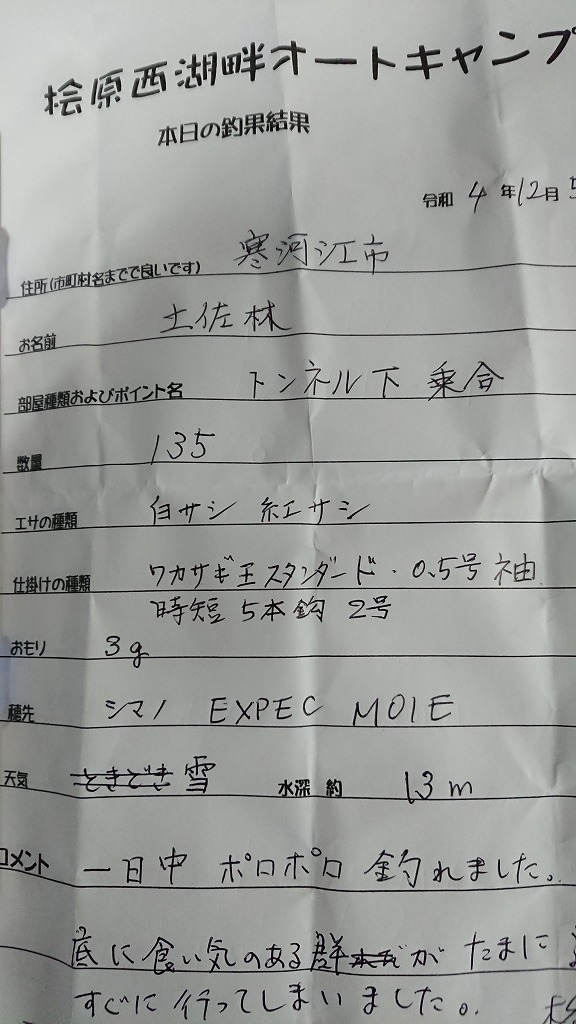 桧原西湖畔オートキャンプ
本日の釣果結果
令和 4 年12月5
住所(市町村名までで良いです) 寒河江市
お名前 土佐林
部屋種類およびポイント名 トンネル下 乗合
数量 135
エサの種類 白サシ 紅サシ
仕掛けの種類 ワカサギ王スタンダード・0.5号 袖
時短 5本鈎 2号
おもり 3g
穂先 シマノ EXPEC M01E
天気 ときどき 雪 水深 約 13m
コメント 一日中 ポロポロ 釣れました。
底に食い気のある群 が たまに
すぐに行ってしまいました。